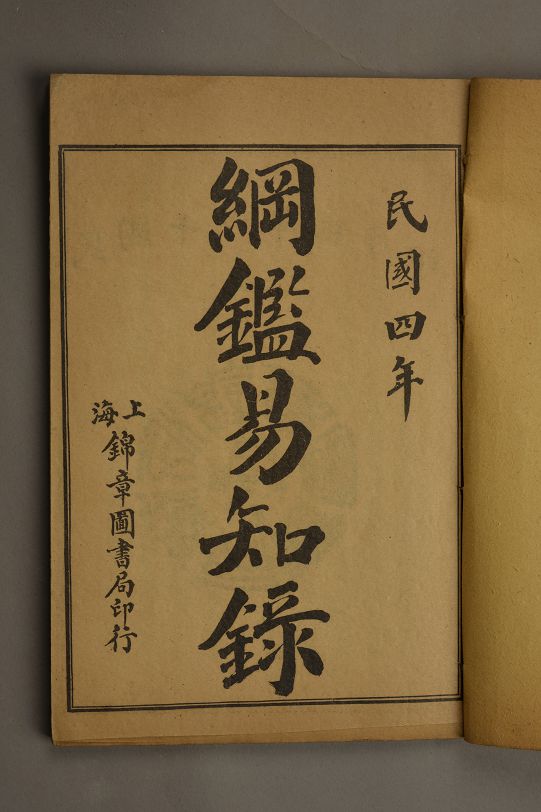 民國四年
綱鑑易知錄
上海錦章圖書局印行